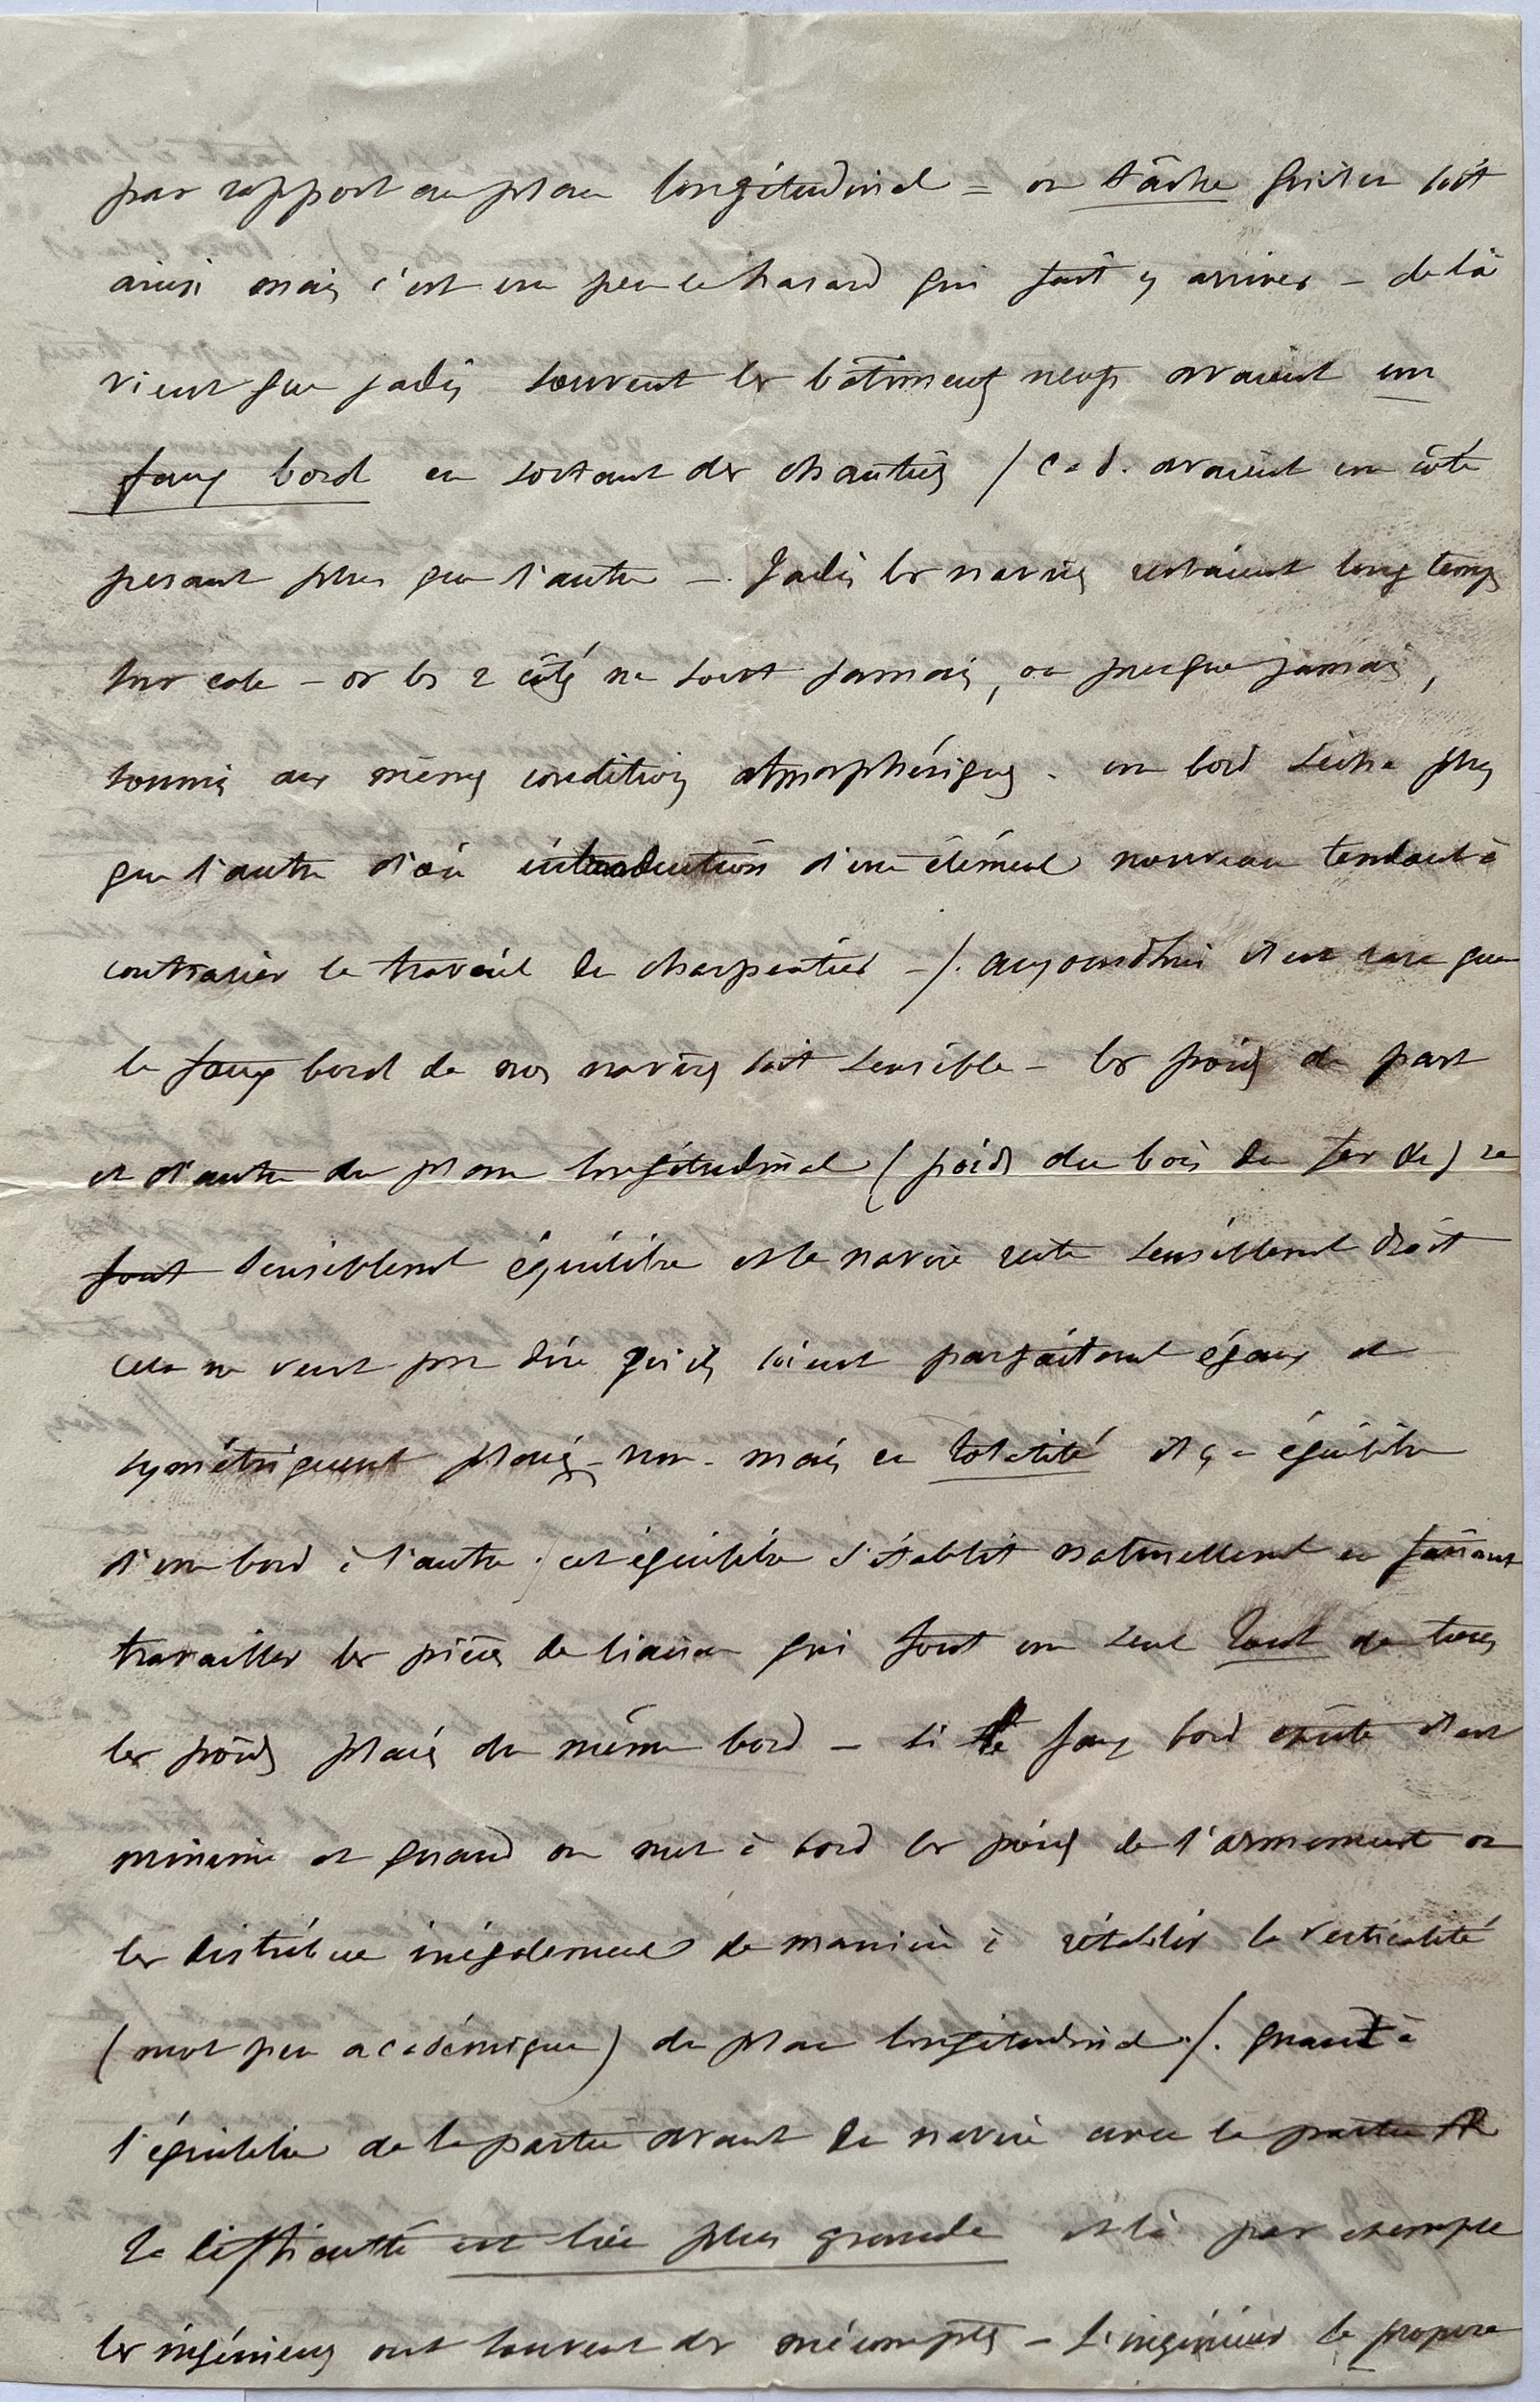 par rapport au plan longitudinal = on tâche qu'il en soit
ainsi mais c'est un peu le hasard qui fait y arriver – de là
vient que jadis souvent les bâtiments neufs avaient un
faux bord en sortant des chantiers / c a d. avaient un côté
pesant plus que l'autre –. Jadis les navires restaient longtemps
sur cale – or les 2 côtés ne sont jamais, ou presque jamais,
soumis aux mêmes conditions atmosphériques. un bord sèche plus
que l'autre d'où introduction d'un élément nouveau tendant à
contrarier le travail du charpentier –/. aujourdhui il est rare que
le faux bord de nos navires soit sensible – les poids de part
et d'autre du plan longitudinal (poids du bois du fer &c) se
font sensiblement équilibre et le navire reste sensiblement droit
cela ne veut pas dire qu'ils soient parfaitement égaux et
symétriquement placés – non – mais en totalité il y a équilibre
d'un bord à l'autre. cet équilibre s'établit naturellement en faisant
travailler les pièces de liaison qui font un seul tout de tous
les poids placés du même bord – si le faux bord existe il est
minime et quand on met à bord les poids de l'armement on
les distribue inégalement de manière à rétablir la verticalité
(mot peu académique) du plan longitudinal./. quant à
l'équilibre de la partie avant du navire avec la partie AR
la difficulté est bien plus grande et là par exemple
les ingénieurs ont souvent des mécomptes – l'ingénieur se propose